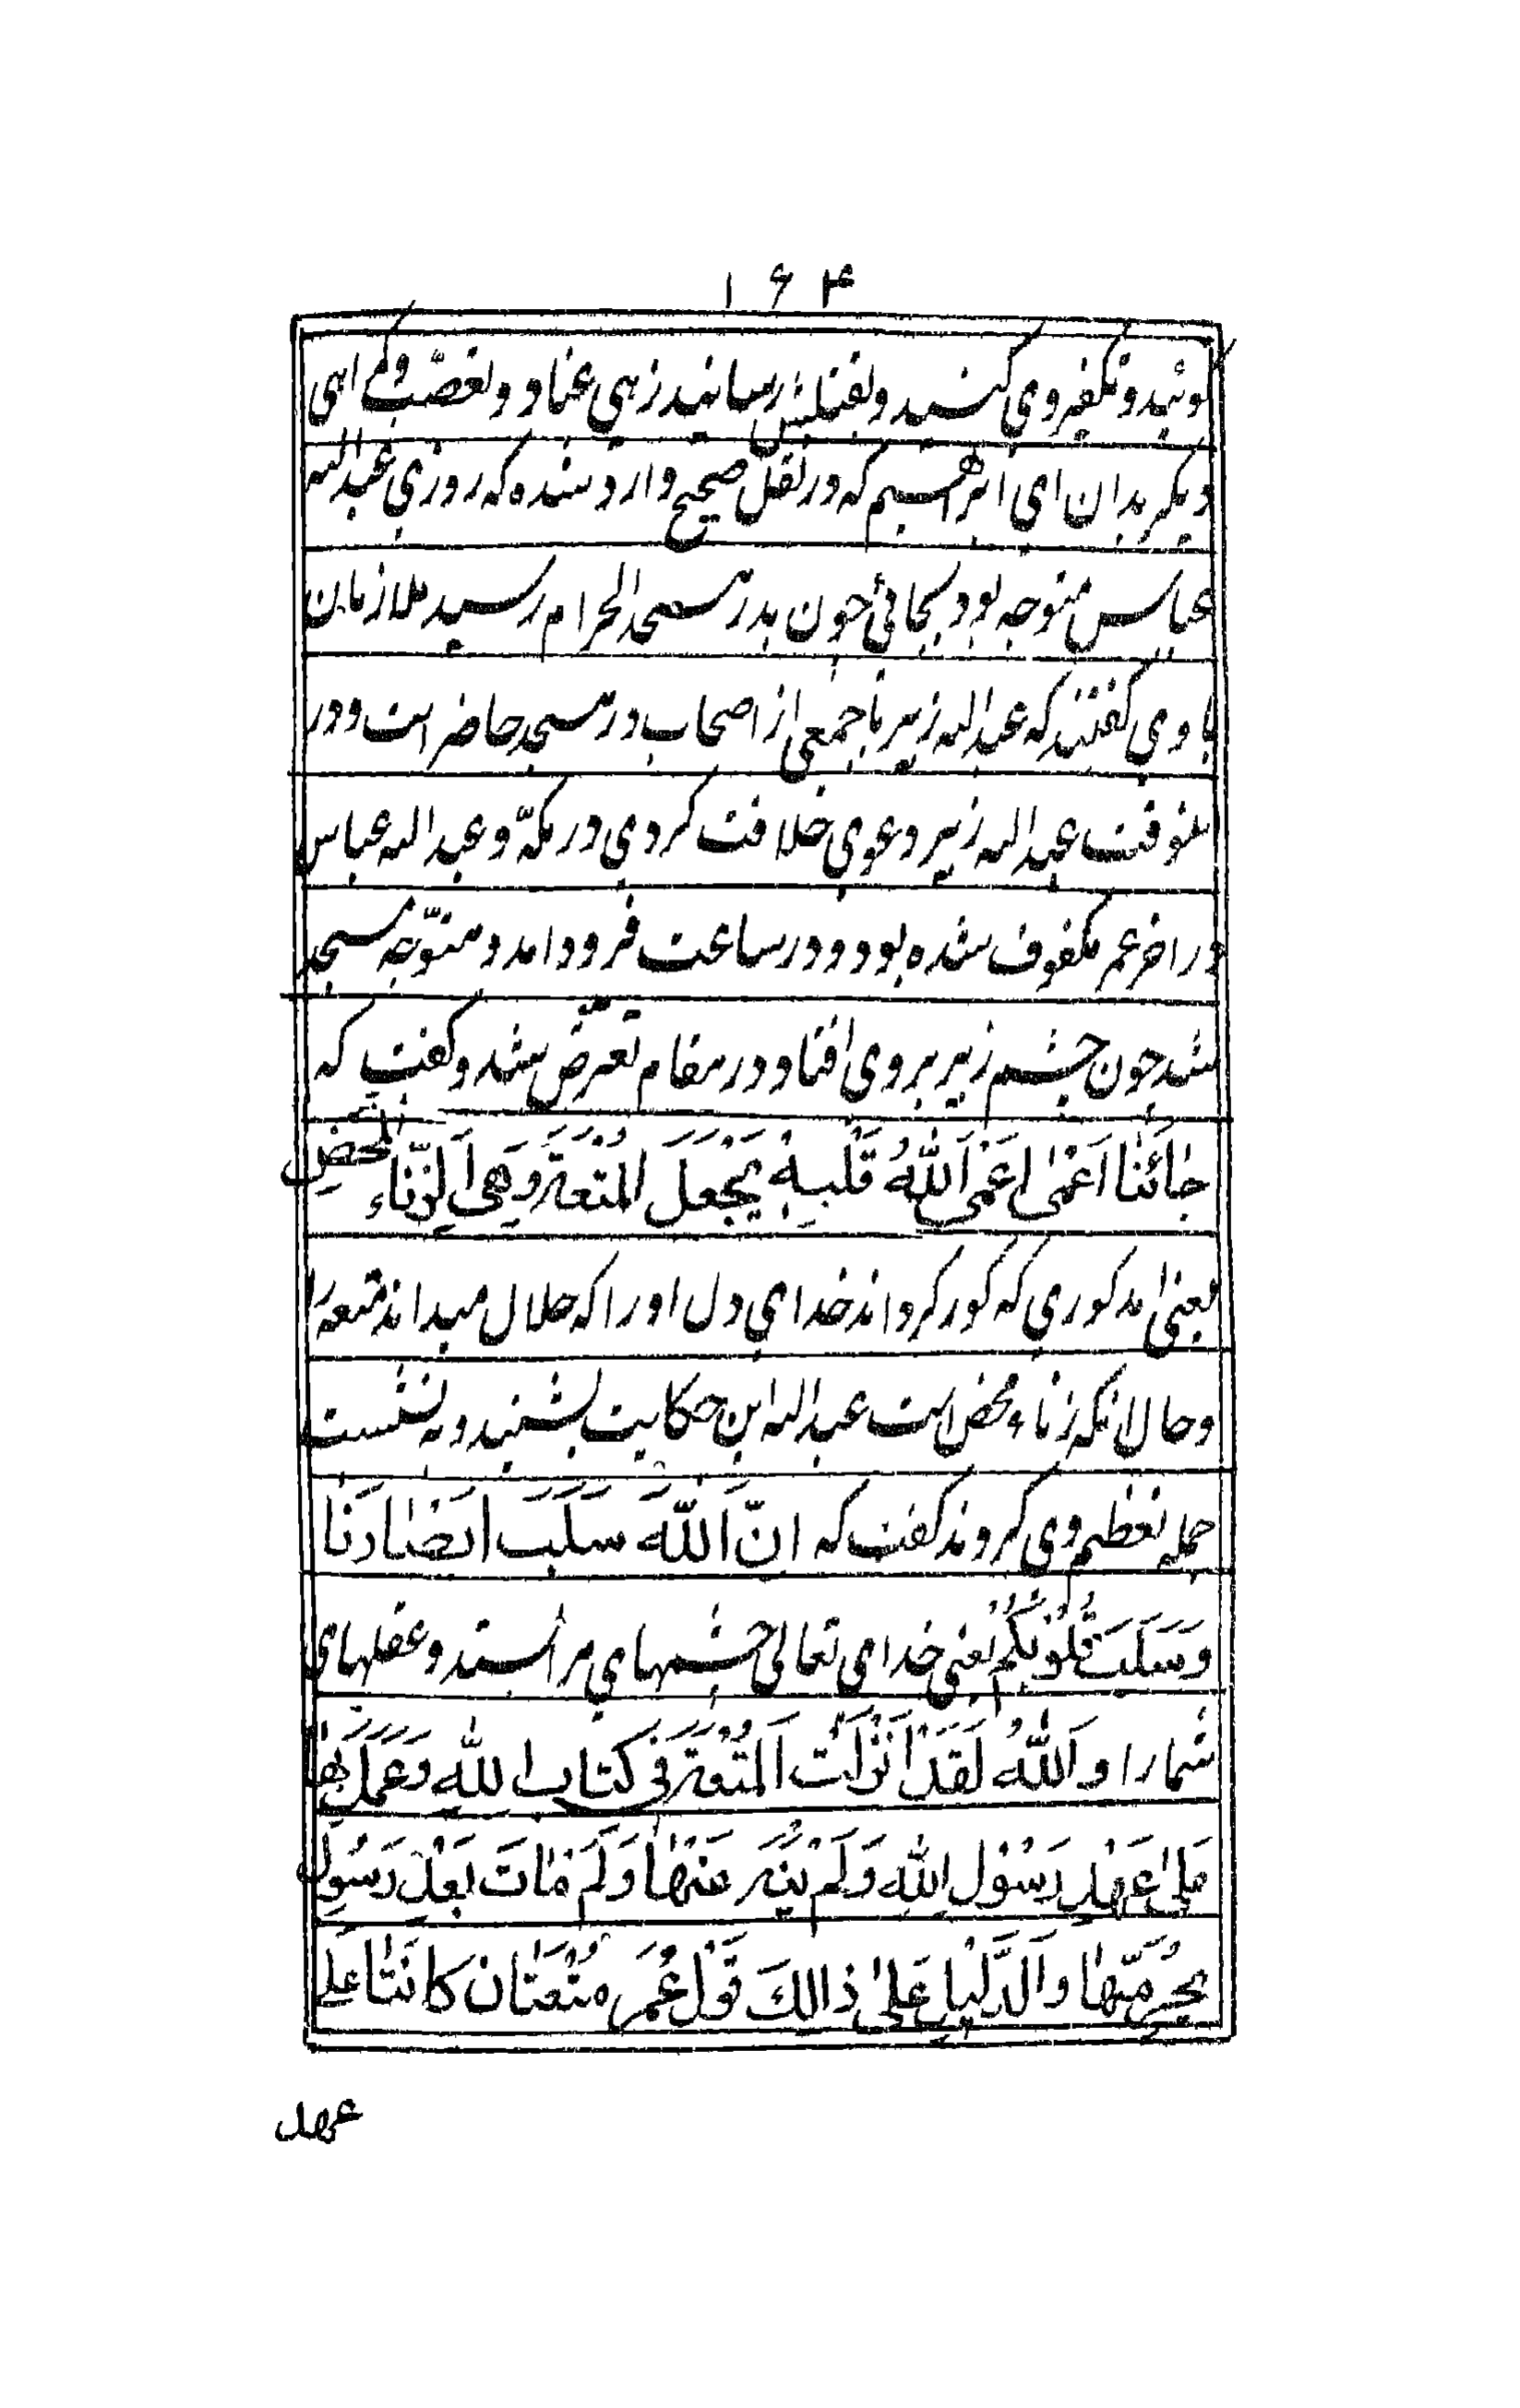 ۱۶۴
گوئید و تکفیر وی کنید و بقتلش رسانید زهی عناد و تعصّب و کم اهی
دیگر بدان ای ابراهیم که در نقل صحیح وارد شده که روزی عبدالله
عباس متوجه بود بجائی چون بدر مسجد الحرام رسید ملازمان
با وی گفتند که عبدالله زبیر با جمعی از اصحاب در مسجد حاضر است و در
انوقت عبدالله زبیر دعوی خلافت کردی در مکّه و عبدالله عباس
در اخر عمر مکفوف شده بود و در ساعت فرود امد و متوّجه مسجد
شد چون چشم زبیر بر وی افتاد در مقام تعرّض شد و گفت که
جٰائَنٰا اَعْمٰی اَعْمَی اَللّٰهُ قَلْبِهِ یَجْعَلَ المُتْعَةَ وَهِیَ اَلزِّنٰاءِ المَحْضِ
یعنی امد کوری که کور گرداند خدای دل او را که حلال میداند متعه را
و حال انکه زناء محض است عبدالله این حکایت بشنید و بنشست
جمله تعظیم وی کردند گفت که اِنَّ اَللّٰهَ سَلَبَ اَبْصٰارَنٰا
وَ سَلَبَ قُلُوْبُکُمْ یعنی خدای تعالی چشمهای مرا بستد و عقلهای
شما را وَ اَللّٰهُ لَقَدْ اَنْزَلَتْ اَلْمُتْعَةَ فِی کتاب اللّٰهِ وَ عَمَلَ بِهٰا
عَلیٰ عَهْدِ رَسُوْلِ اللّٰهِ وَلَمْ یَنْزِ عَنْهٰا وَلَمْ مٰاتَ بَعْدَ رَسُوْلِ
یُحَرِّمَنّهٰا وَ اَلدَّلِیْلِ عَلیٰ ذالِكَ قَوْلُ عُمَرَ مُتْعَتٰان کانَتٰا عَلیٰ
عهد